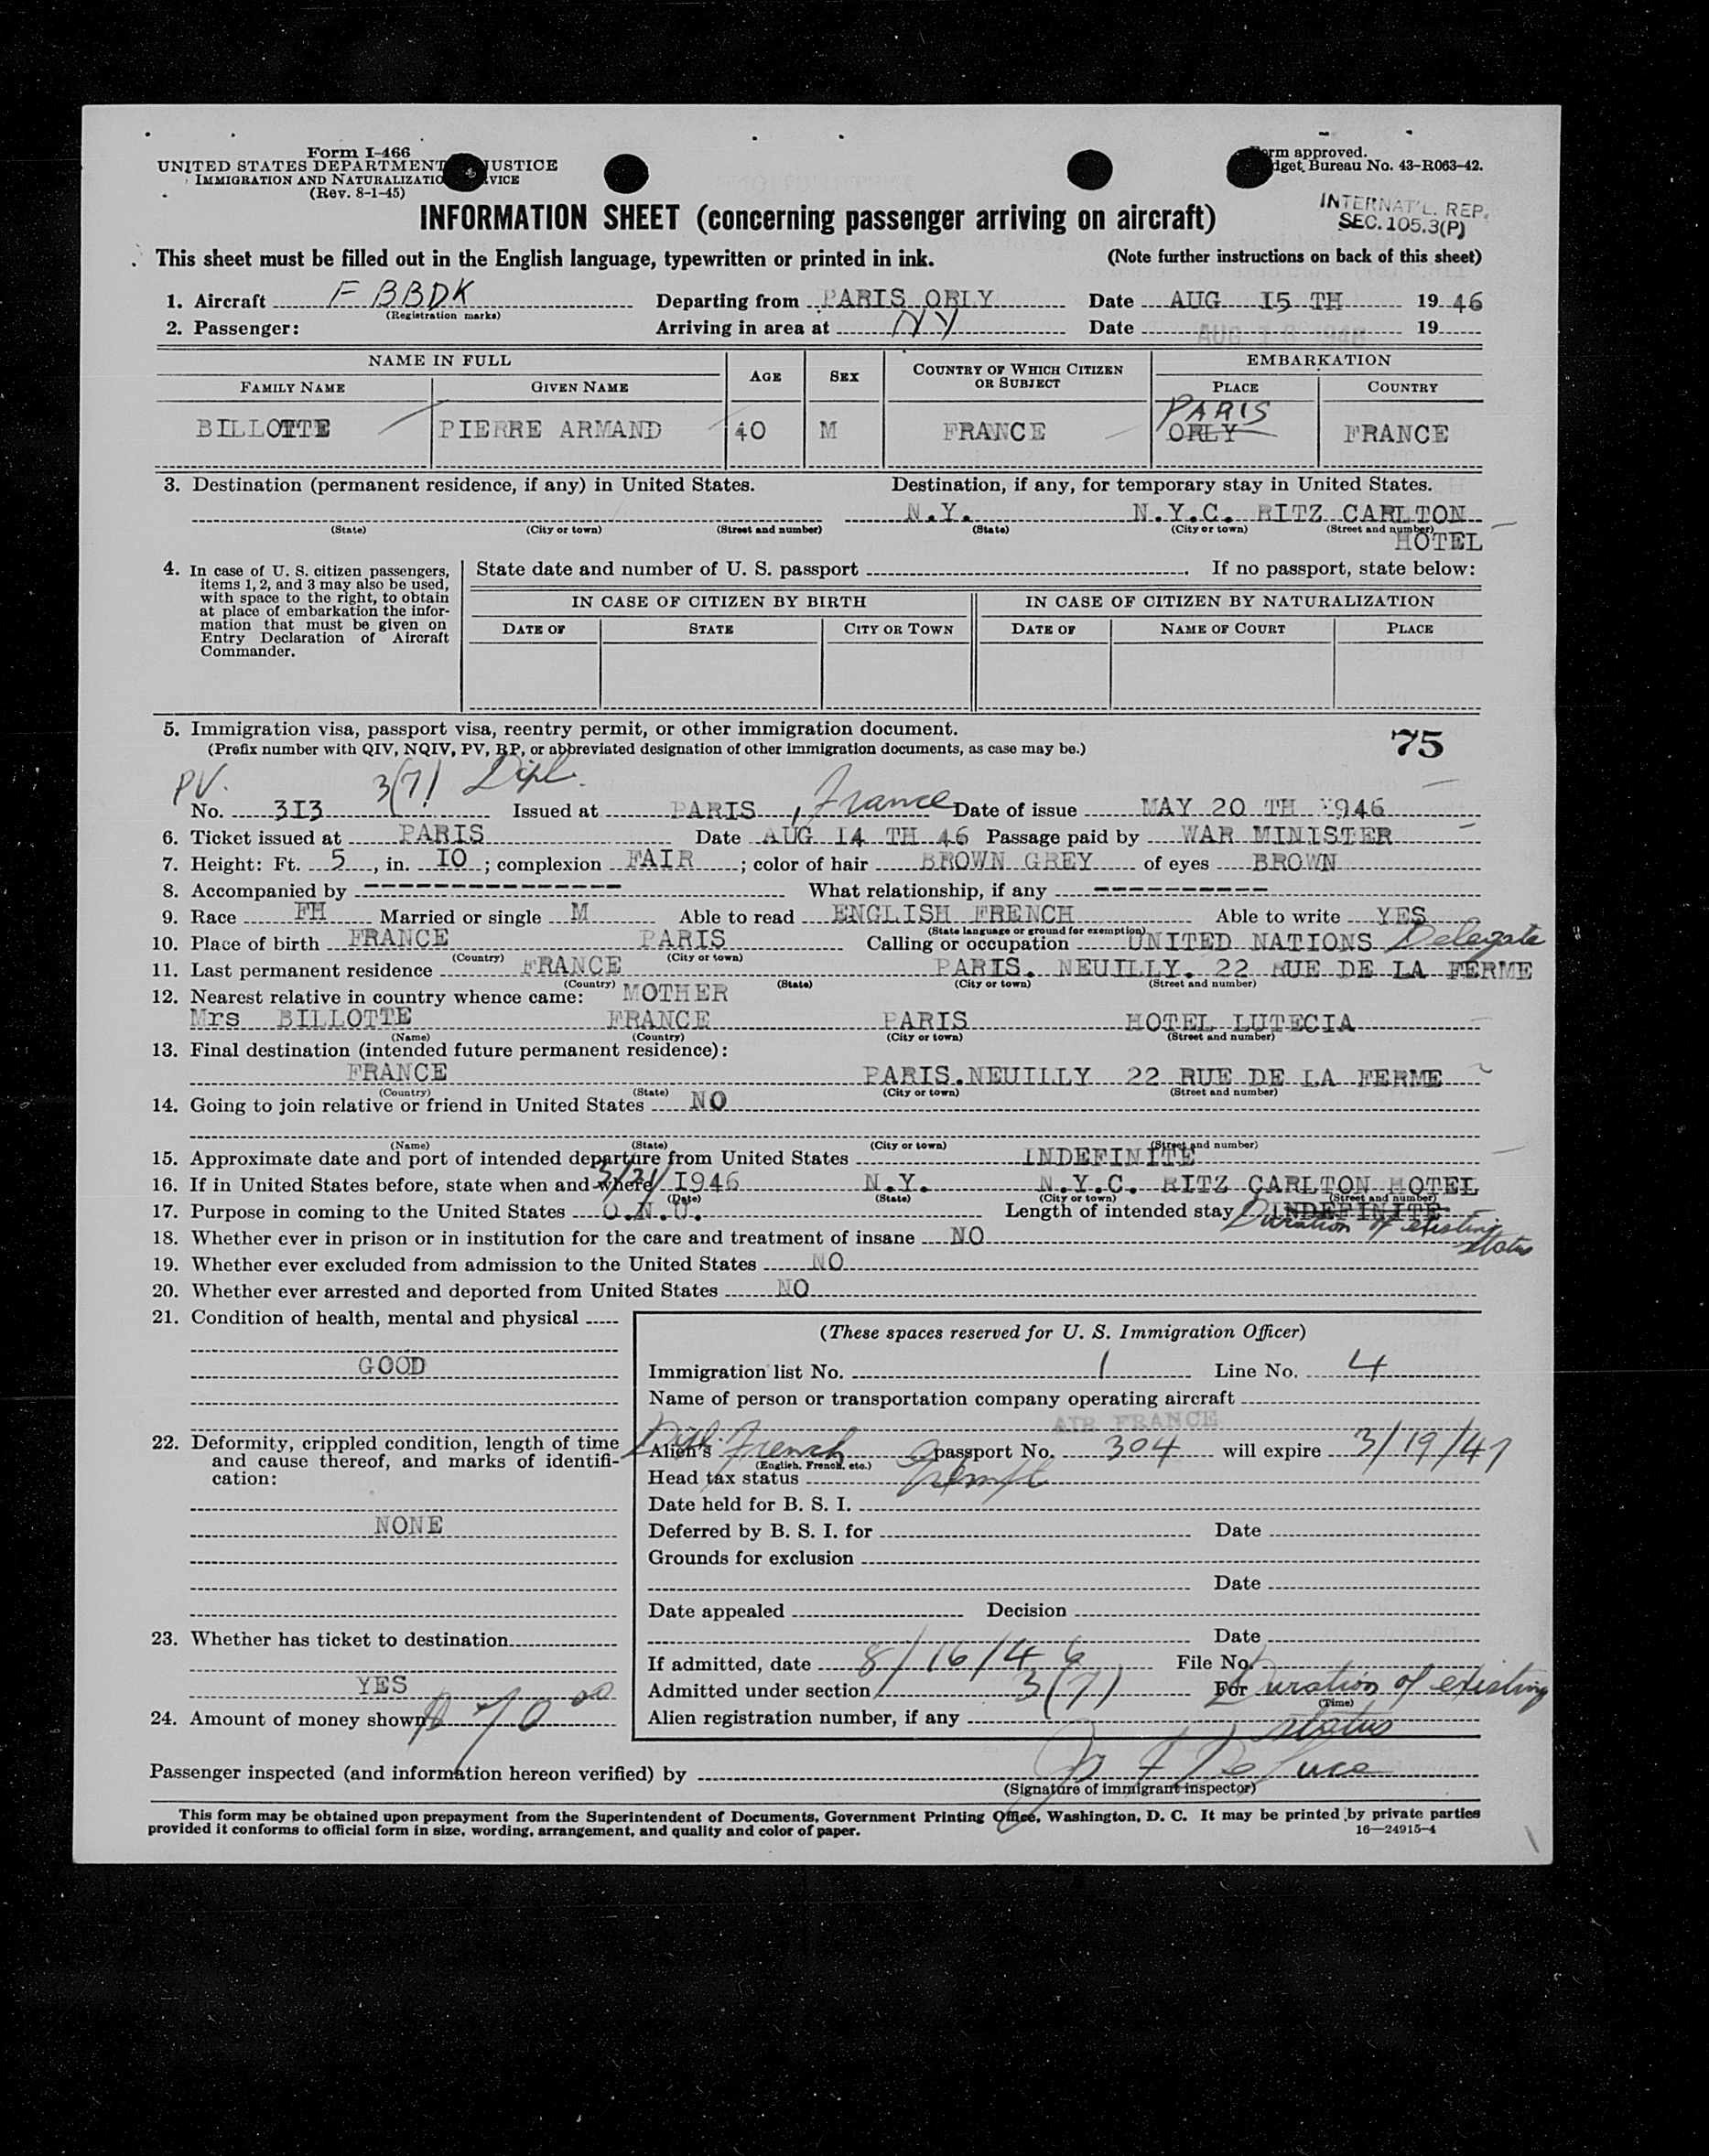 Form I-466
UNITED STATES DEPARTMENT JUSTICE
IMMIGRATION AND NATURALIZATIO VICE
(Rev. 8-1-45)
rm approved.
dget Bureau No. 43-R063-42.
INTERNAT'L. REP.
SEC. 105.3(P)
INFORMATION SHEET (concerning passenger arriving on aircraft)
This sheet must be filled out in the English language, typewritten or printed in ink. (Note further instructions on back of this sheet)
1. Aircraft F BBDK Departing from PARIS ORLY Date AUG I5 TH 19 46
(Registration marks)
2. Passenger: Arriving in area at NY Date 19
NAME IN FULL AGE SEX COUNTRY OF WHICH CITIZEN OR SUBJECT EMBARKATION
FAMILY NAME GIVEN NAME PLACE COUNTRY
PARIS
BILLOTTE PIERRE ARMAND 40 M FRANCE ORLY FRANCE
3. Destination (permanent residence, if any) in United States. Destination, if any, for temporary stay in United States.
N.Y. N.Y.C. RITZ CARLTON
(State) (City or town) (Street and number) (State) (City or town) (Street and number)
HOTEL
4. In case of U. S. citizen passengers, items 1, 2, and 3 may also be used, with space to the right, to obtain at place of embarkation the information that must be given on Entry Declaration of Aircraft Commander.
State date and number of U. S. passport . If no passport, state below:
IN CASE OF CITIZEN BY BIRTH IN CASE OF CITIZEN BY NATURALIZATION
DATE OF STATE CITY OR TOWN DATE OF NAME OF COURT PLACE
5. Immigration visa, passport visa, reentry permit, or other immigration document.
(Prefix number with QIV, NQIV, PV, RP, or abbreviated designation of other immigration documents, as case may be.)
75
PV. 3(7) Dipl.
No. 3I3 Issued at PARIS, France Date of issue MAY 20 TH I946
6. Ticket issued at PARIS Date AUG I4 TH 46 Passage paid by WAR MINISTER
7. Height: Ft. 5, in. IO; complexion FAIR; color of hair BROWN GREY of eyes BROWN
8. Accompanied by --------------- What relationship, if any ----------
9. Race FH Married or single M Able to read ENGLISH FRENCH Able to write YES
(State language or ground for exemption)
10. Place of birth FRANCE PARIS Calling or occupation UNITED NATIONS Delegate
(Country) (City or town)
11. Last permanent residence FRANCE PARIS. NEUILLY. 22 RUE DE LA FERME
(Country) (State) (City or town) (Street and number)
12. Nearest relative in country whence came: MOTHER
Mrs BILLOTTE FRANCE PARIS HOTEL LUTECIA
(Name) (Country) (City or town) (Street and number)
13. Final destination (intended future permanent residence):
FRANCE PARIS.NEUILLY 22 RUE DE LA FERME
(Country) (State) (City or town) (Street and number)
14. Going to join relative or friend in United States NO
(Name) (State) (City or town) (Street and number)
15. Approximate date and port of intended departure from United States INDEFINITE
16. If in United States before, state when and where 3/21/ I946 N.Y. N.Y.C. RITZ CARLTON HOTEL
(Date) (State) (City or town) (Street and number)
17. Purpose in coming to the United States O.N.U. Length of intended stay INDEFINITE Duration of existing status
18. Whether ever in prison or in institution for the care and treatment of insane NO
19. Whether ever excluded from admission to the United States NO
20. Whether ever arrested and deported from United States NO
21. Condition of health, mental and physical
GOOD
22. Deformity, crippled condition, length of time and cause thereof, and marks of identification:
NONE
23. Whether has ticket to destination
YES
24. Amount of money shown $ 70 00
(These spaces reserved for U. S. Immigration Officer)
Immigration list No. 1 Line No. 4
Name of person or transportation company operating aircraft
AIR FRANCE
Alien's Dipl. French passport No. 304 will expire 3/19/47
(English, French, etc.)
Head tax status Exempt
Date held for B. S. I.
Deferred by B. S. I. for Date
Grounds for exclusion
Date
Date appealed Decision
Date
If admitted, date 8/16/46 File No.
Admitted under section 3(7) For Duration of existing
(Time)
Alien registration number, if any status
Passenger inspected (and information hereon verified) by
(Signature of immigrant inspector)
This form may be obtained upon prepayment from the Superintendent of Documents, Government Printing Office, Washington, D. C. It may be printed by private parties
provided it conforms to official form in size, wording, arrangement, and quality and color of paper. 16—24915-4